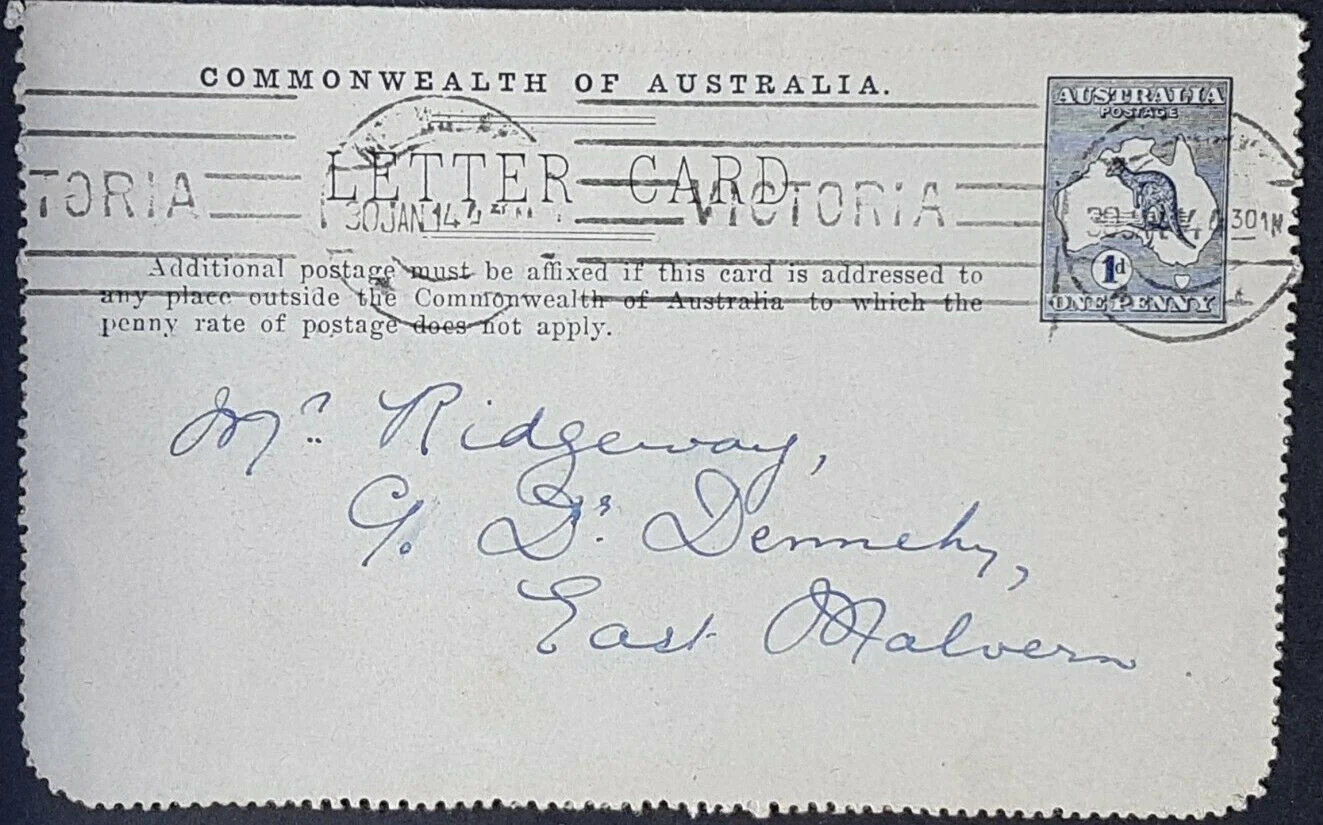 COMMONWEALTH OF AUSTRALIA.
AUSTRALIA
POSTAGE
LETTER CARD
TORIA
VICTORIA
30 JAN 14
30
1d
ONE PENNY
Additional postage must be affixed if this card is addressed to
any place outside the Commonwealth of Australia to which the
penny rate of postage does not apply.
Mr. Ridgeway,
C/. Dr. Dennehy,
East Malvern